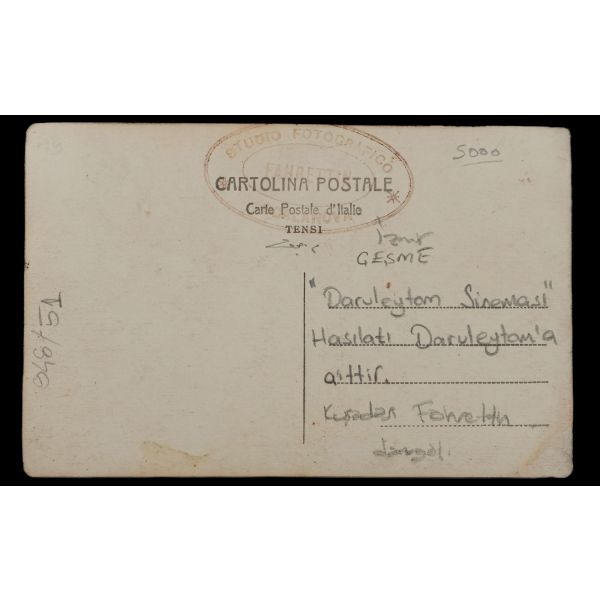 STUDIO FOTOGRAFICO
FAHRETTIN
CARTOLINA POSTALE
Carte Postale d'Italie
TENSI
5000
İzmir
ÇEŞME
"Daruleytam Sineması"
Hasılatı Daruleytam'a
aittir.
Kuşadası Fahrettin
damgalı